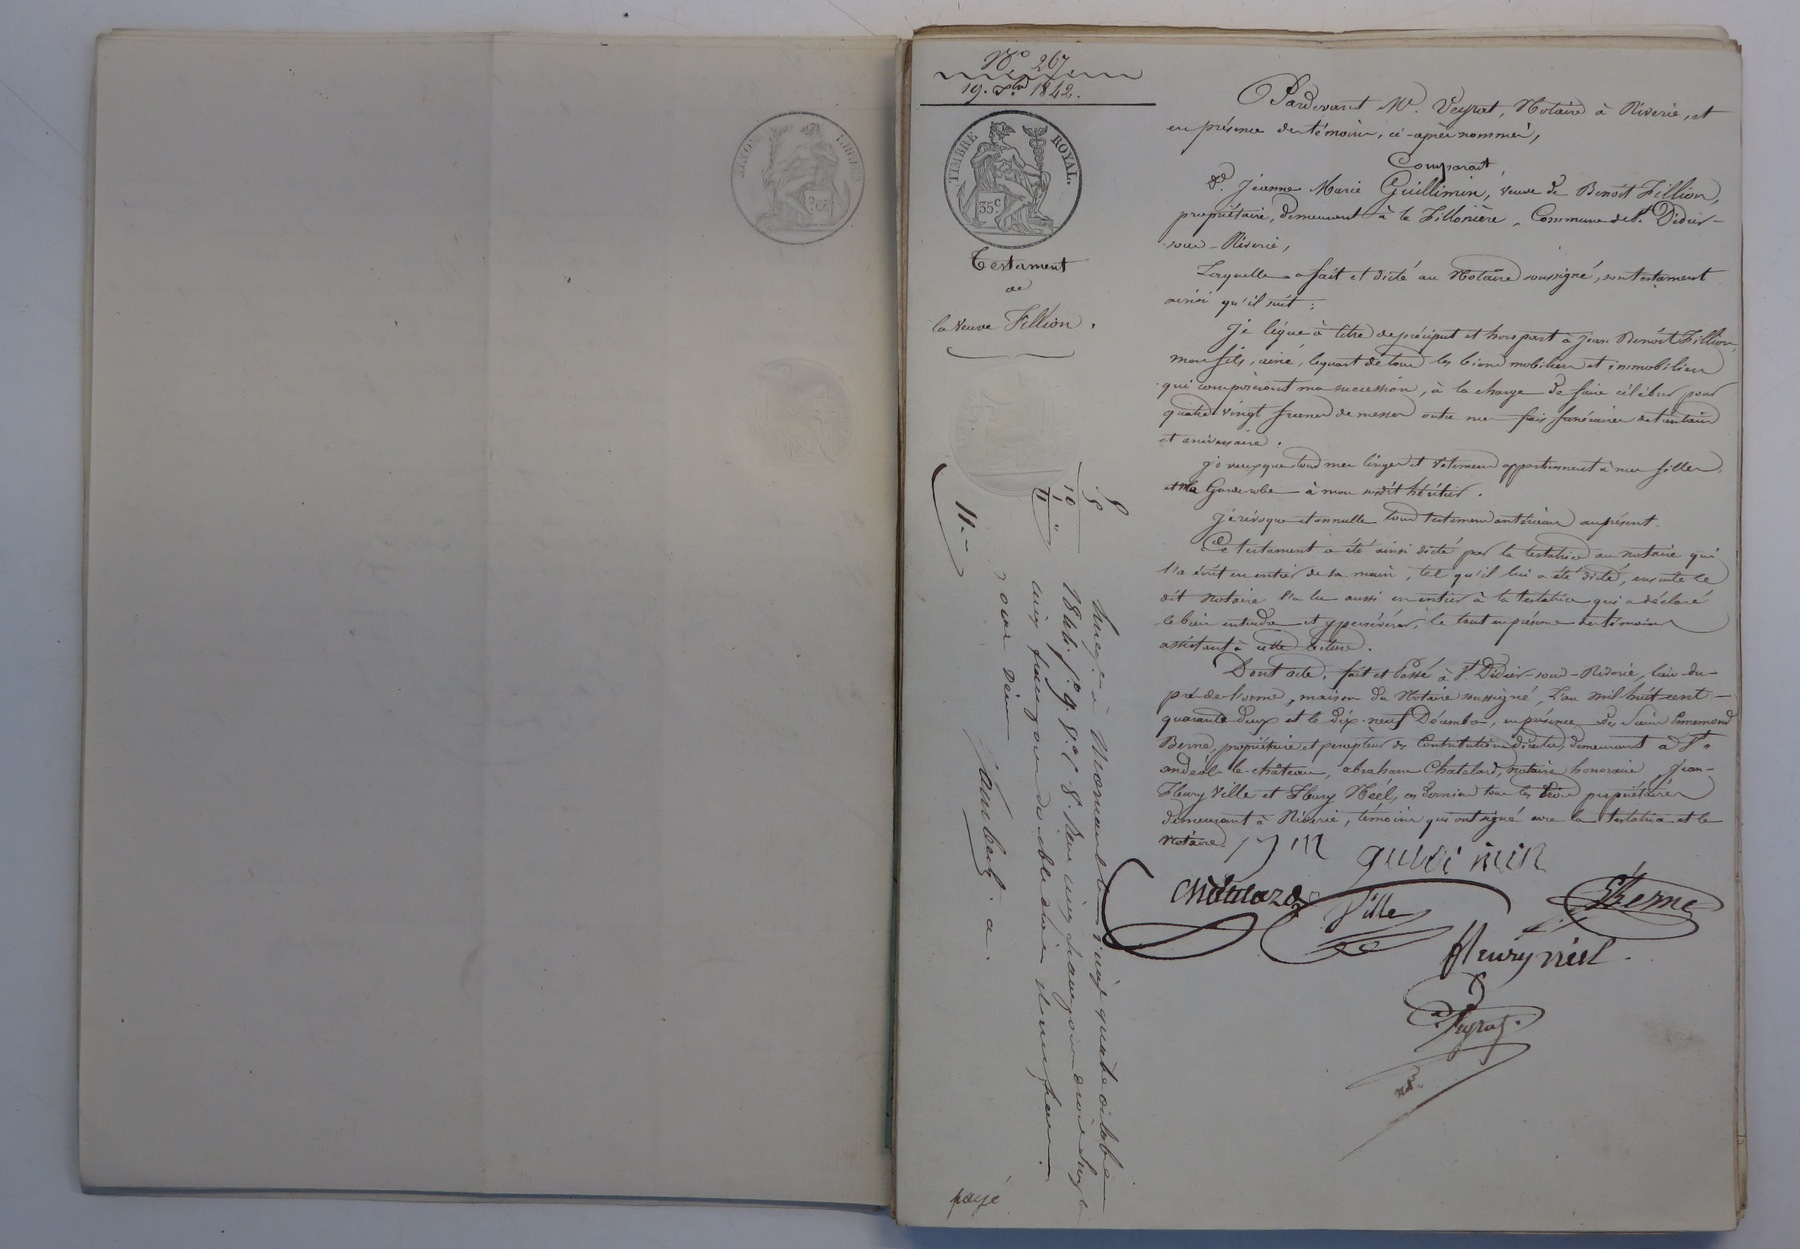 N.° 267
19. Xbre 1842.
TIMBRE ROYAL.
35.c
Testament
de
la veuve Fillion.
Pardevant Me. Veyrat, Notaire à Riverie, et
en présence des témoins, ci-après nommés,
Comparait
De. Jeanne Marie Guillimin, veuve de Benoît Fillion,
propriétaire, demeurant à la Fillonière, Commune de St. Didier-
sous-Riverie,
Laquelle a fait et dicté au Notaire soussigné, son testament
ainsi qu'il suit :
Je lègue à titre de préciput et hors part à jean Benoît Fillion,
mon fils, ainé, le quart de tous les biens mobiliers et immobiliers
qui composeront ma succession, à la charge de faire célébrer pour
quatre vingt francs de messes outre mes frais funéraires de trentain
et aniversaire.
je veux que tous mes linges et vetemens appartiennent à mes filles
et ma Garderobe à mon susdit héritier.
Je révoque et annulle tous testamens antérieurs au présent.
Ce testament a été ainsi dicté par la testatrice au notaire qui
l'a écrit en entier de sa main, tel qu'il lui a été dicté, ensuite le
dit Notaire l'a lu aussi en entier à la testatrice qui a déclaré
le bien entendre et y persévérer, le tout en présence des témoins
assistant à cette lecture.
Dont acte, fait et Passé à St. Didier-sous-Riverie, lieu du
pré-de-l'orme, maison du Notaire soussigné, L'an mil huit cent-
quarante deux et le dix-neuf Décembre, en présence des Sieurs Ennemond
Berne, propriétaire et percepteur des Contributions directes, demeurant à St.
andéol-le-château, abraham Chatelard, notaire honoraire, Jean-
Fleury Ville et Fleury Néel, ces derniers tous les trois propriétaires
demeurant à Riverie, témoins qui ont signé avec la testatrice et le
Notaire. J M guilli min
Chatelard Ville EBerne
fleury néel.
Veyrat.
5
10
11
11
Enreg. à Mornant le vingt quatre octobre
1846. f.° 9. R.° C. 8. Reçu cinq francs pour droit de legs
cinq francs pour de ablation et un franc
pour décime Jaubert. a.
payé